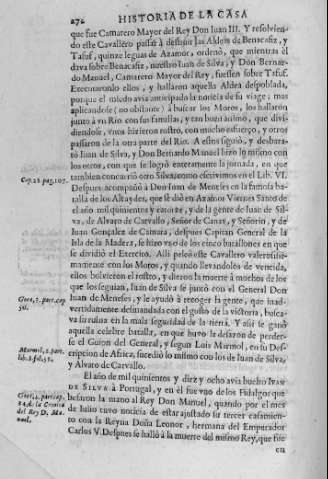 272 HISTORIA DE LA CASA
que fue Camarero Mayor del Rey Don Iuan III. Y resolvien-
do este Cavallero passar à destruir las Aldeas de Benacafiz, y
Tafuf, quinze leguas de Azamor, ordenò, que mientras el
dava sobre Benacafiz, nuestro Iuan de Silva, y Don Bernar-
do Manuel, Camarero Mayor del Rey, fuessen sobre Tafuf.
Executaronlo ellos, y hallaron aquella Aldea despoblada,
porque el miedo avia anticipado la noticia de su viage; mas
aplicandose (no obstante) à buscar los Moros, los hallaron
junto à vn Rio con sus familias, y tan buen animo, que divi-
diendose, vnos hizieron rostro, con mucho esfuerço, y otros
passaron de la otra parte del Rio. A estos siguiò, y desbara-
tò Iuan de Silva, y Don Bernardo Manuel hizo lo mismo con
los otros, con que se logrò enteramente la jornada, en que
tambien concurriò otro Silva, como escrivimos en el Lib. VI.
Cap. 21. pag. 107.
Despues acompañò à Don Iuan de Meneses en la famosa ba-
talla de los Alcaydes, que se diò en Azamor Viernes Santo de
el año mil quinientos y catorze, y de la gente de Iuan de Sil-
va, de Alvaro de Carvallo, Señor de Canas, y Señorin, y de
Iuan Gonçalez de Camara, despues Capitan General de la
Isla de la Madera, se hizo vno de los cinco batallones en que
se dividiò el Exercito. Alli peleò este Cavallero valerosissi-
mamente con los Moros, y quando llevandolos de vencida,
ellos bolvieron el rostro, y dieron la muerte à muchos de los
que los seguian, Iuan de Silva se juntò con el General Don
Iuan de Meneses, y le ayudò à recoger la gente, que inad-
Goes, 3. part. cap.
50.
vertidamente desmandada con el gusto de la victoria, busca-
va su ruina en la mala seguridad de la tierra. Y assi se ganò
aquella celebre batalla, en que huvo de desazon de perder-
se el Guion del General, y segun Luis Marmol, en su Des-
Marmol, 2. part.
lib. 3. fol. 58.
cripcion de Africa, sucediò lo mismo con los de Iuan de Silva,
y Alvaro de Carvallo.
El año de mil quinientos y diez y ocho avia buelto IVAN
DE SILVA à Portugal, y en èl fue vno de los Fidalgos que
Goes, 4. part. cap.
34. de la Cronica
del Rey D. Ma-
nuel.
besaron la mano al Rey Don Manuel, quando por el mes
de Iulio tuvo noticia de estar ajustado su tercer casamien-
to con la Reyna Doña Leonor, hermana del Emperador
Carlos V. Despues se hallò à la muerte del mismo Rey, que fue
en